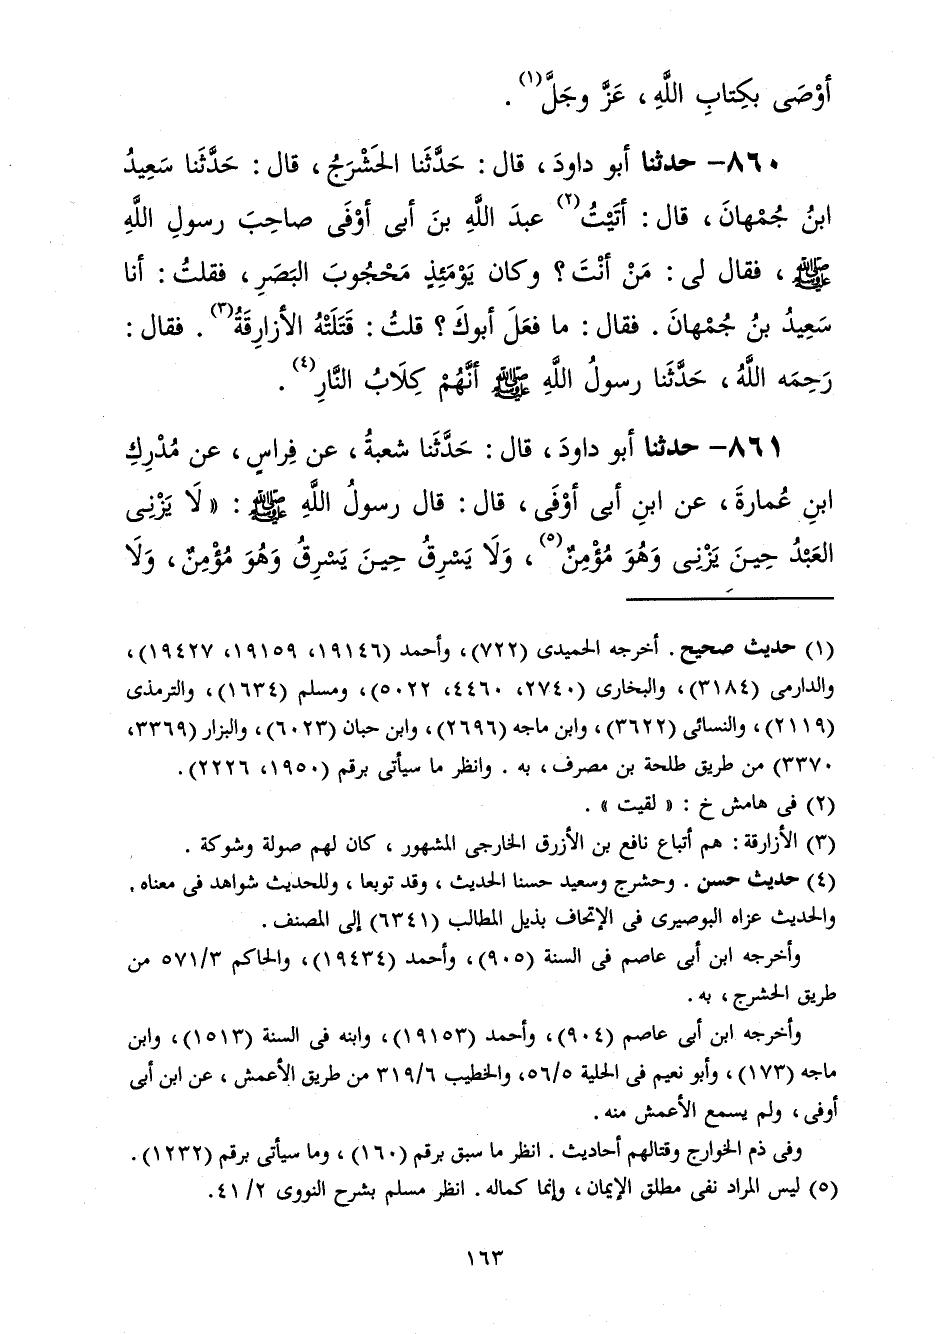 أوْصَى بكِتابِ اللَّهِ ، عَزَّ وجَلَّ(١) .
٨٦٠- حدثنا أبو داودَ ، قال : حَدَّثَنا الحَشْرَجُ ، قال : حَدَّثَنا سَعِيدُ
ابنُ جُمْهانَ ، قال : أتَيْتُ(٢) عبدَ اللَّهِ بنَ أبى أوْفَى صاحِبَ رسولِ اللَّهِ
ﷺ ، فقال لى : مَنْ أنْتَ ؟ وكان يَوْمَئِذٍ مَحْجُوبَ البَصَرِ ، فقلتُ : أنا
سَعِيدُ بنُ جُمْهانَ . فقال : ما فعَلَ أبوكَ ؟ قلتُ : قَتَلَتْهُ الأزارِقَةُ(٣) . فقال :
رَحِمَه اللَّهُ ، حَدَّثَنا رسولُ اللَّهِ ﷺ أنَّهُمْ كِلَابُ النَّارِ(٤) .
٨٦١- حدثنا أبو داودَ ، قال : حَدَّثَنا شعبةُ ، عن فِراسٍ ، عن مُدْرِكِ
ابنِ عُمارةَ ، عن ابنِ أبى أوْفَى ، قال : قال رسولُ اللَّهِ ﷺ : « لَا يَزْنِى
العَبْدُ حِينَ يَزْنِى وَهُوَ مُؤْمِنٌ(٥) ، وَلَا يَسْرِقُ حِينَ يَسْرِقُ وَهُوَ مُؤْمِنٌ ، وَلَا
(١) حديث صحيح . أخرجه الحميدى (٧٢٢) ، وأحمد (١٩١٤٦، ١٩١٥٩، ١٩٤٢٧) ،
والدارمى (٣١٨٤) ، والبخارى (٢٧٤٠، ٤٤٦٠، ٥٠٢٢) ، ومسلم (١٦٣٤) ، والترمذى
(٢١١٩) ، والنسائى (٣٦٢٢) ، وابن ماجه (٢٦٩٦) ، وابن حبان (٦٠٢٣) ، والبزار (٣٣٦٩،
٣٣٧٠) من طريق طلحة بن مصرف ، به . وانظر ما سيأتى برقم (١٩٥٠، ٢٢٢٦) .
(٢) فى هامش خ : « لقيت » .
(٣) الأزارقة : هم أتباع نافع بن الأزرق الخارجى المشهور ، كان لهم صولة وشوكة .
(٤) حديث حسن . وحشرج وسعيد حسنا الحديث ، وقد توبعا ، وللحديث شواهد فى معناه .
والحديث عزاه البوصيرى فى الإتحاف بذيل المطالب (٦٣٤١) إلى المصنف .
وأخرجه ابن أبى عاصم فى السنة (٩٠٥) ، وأحمد (١٩٤٣٤) ، والحاكم ٥٧١/٣ من
طريق الحشرج ، به .
وأخرجه ابن أبى عاصم (٩٠٤) ، وأحمد (١٩١٥٣) ، وابنه فى السنة (١٥١٣) ، وابن
ماجه (١٧٣) ، وأبو نعيم فى الحلية ٥٦/٥، والخطيب ٣١٩/٦ من طريق الأعمش ، عن ابن أبى
أوفى ، ولم يسمع الأعمش منه .
وفى ذم الخوارج وقتالهم أحاديث . انظر ما سبق برقم (١٦٠) ، وما سيأتى برقم (١٢٣٢) .
(٥) ليس المراد نفى مطلق الإيمان ، وإنما كماله . انظر مسلم بشرح النووى ٤١/٢ .
١٦٣